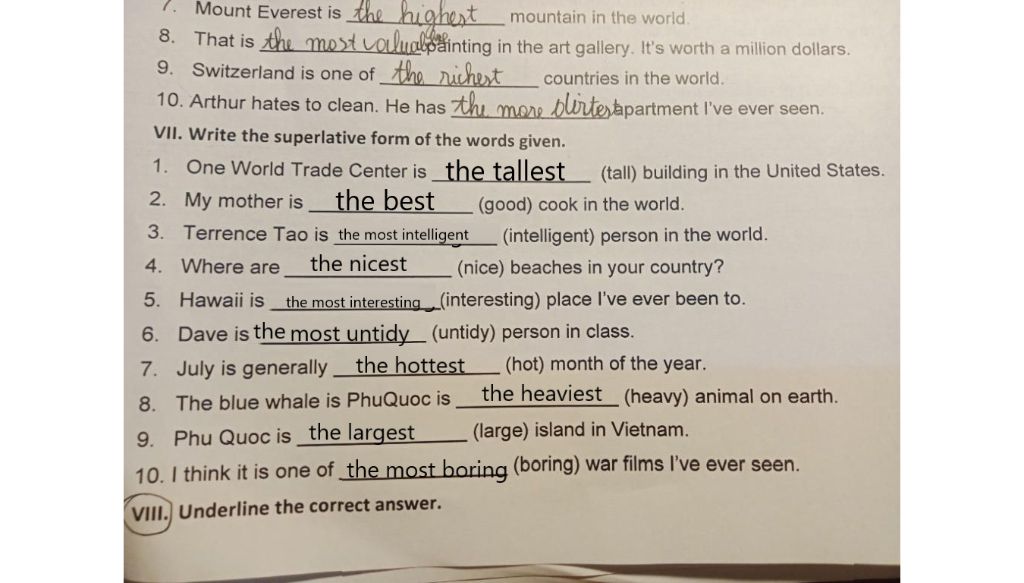 7. Mount Everest is the highest mountain in the world.
8. That is the most valuable painting in the art gallery. It's worth a million dollars.
9. Switzerland is one of the richest countries in the world.
10. Arthur hates to clean. He has the more dirtest apartment I've ever seen.
VII. Write the superlative form of the words given.
1. One World Trade Center is the tallest (tall) building in the United States.
2. My mother is the best (good) cook in the world.
3. Terrence Tao is the most intelligent (intelligent) person in the world.
4. Where are the nicest (nice) beaches in your country?
5. Hawaii is the most interesting (interesting) place I've ever been to.
6. Dave is the most untidy (untidy) person in class.
7. July is generally the hottest (hot) month of the year.
8. The blue whale is PhuQuoc is the heaviest (heavy) animal on earth.
9. Phu Quoc is the largest (large) island in Vietnam.
10. I think it is one of the most boring (boring) war films I've ever seen.
VIII. Underline the correct answer.